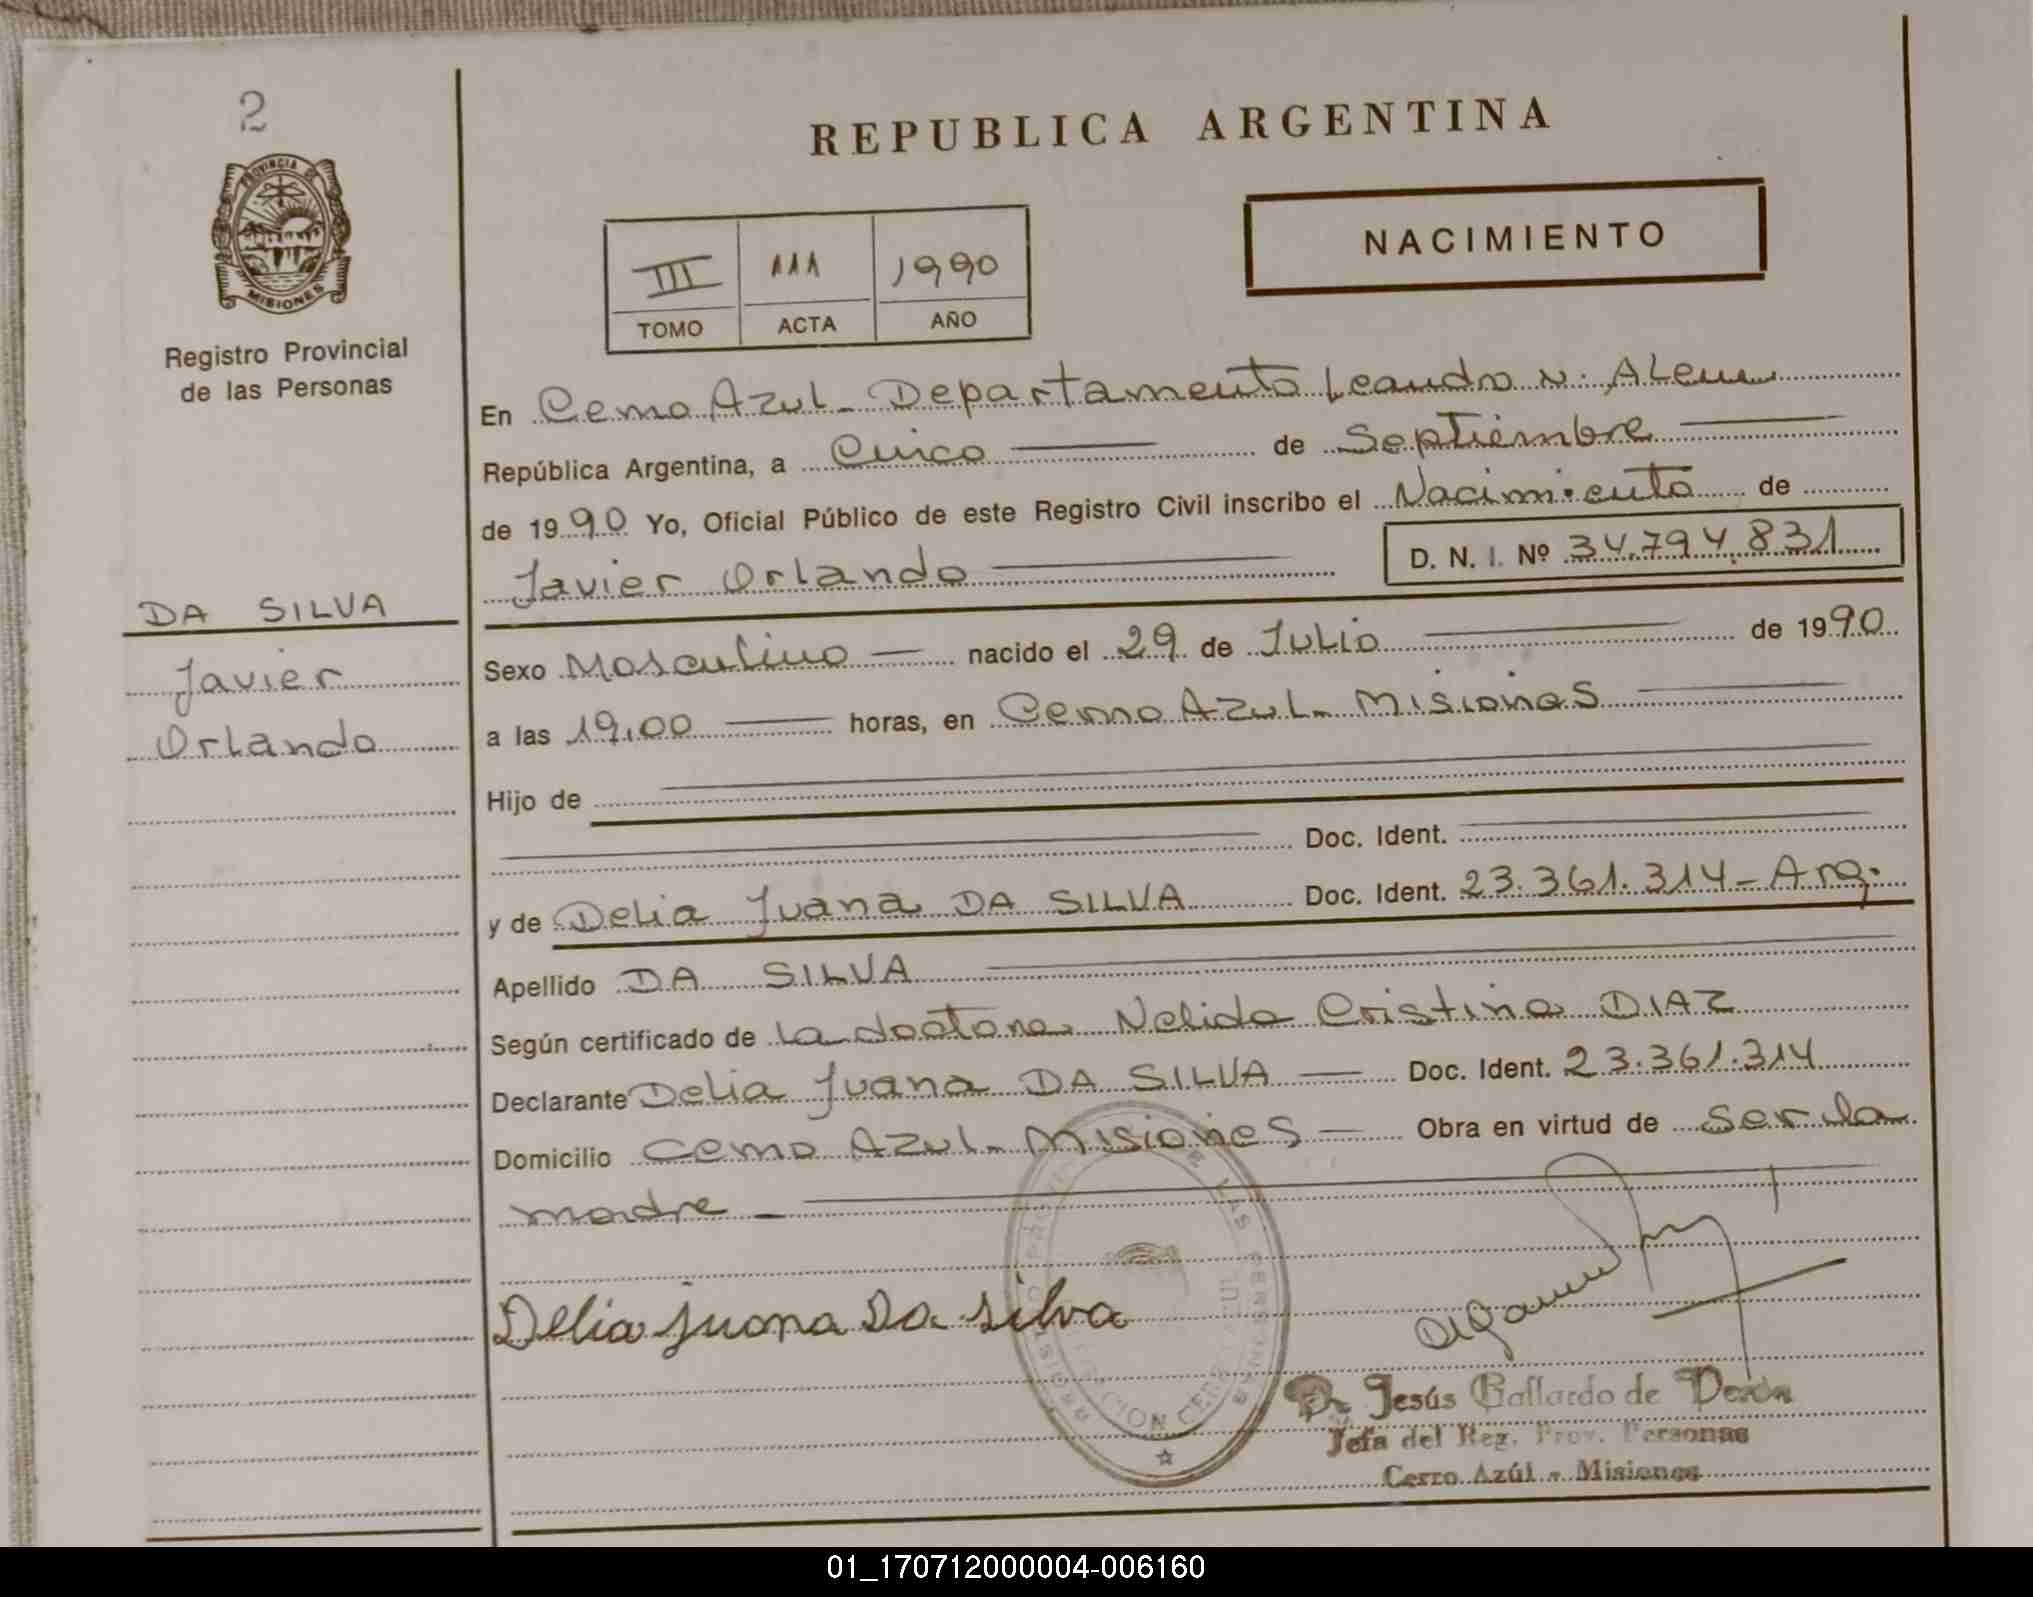 2
PROVINCIA DE
MISIONES
Registro Provincial
de las Personas
REPUBLICA ARGENTINA
III 111 1990
TOMO ACTA AÑO
NACIMIENTO
En Cerro Azul - Departamento Leandro N. ALem
República Argentina, a Cinco de Septiembre
de 1990 Yo, Oficial Público de este Registro Civil inscribo el Nacimiento de
Javier Orlando D. N. I. Nº 34.794.831
DA SILVA
Javier
Orlando
Sexo Masculino nacido el 29 de Julio de 1990
a las 19,00 horas, en Cerro Azul - Misiones
Hijo de
Doc. Ident.
y de Delia Juana DA SILVA Doc. Ident. 23.361.314 - Arg.
Apellido DA SILVA
Según certificado de la doctora Nelida Cristina DIAZ
Declarante Delia Juana DA SILVA Doc. Ident. 23.361.314
Domicilio Cerro Azul - Misiones Obra en virtud de ser la
madre
Delia juana Da silva
Jesús Gallardo de
Jefa del Reg. Prov. Personas
Cerro Azúl - Misiones
01_170712000004-006160